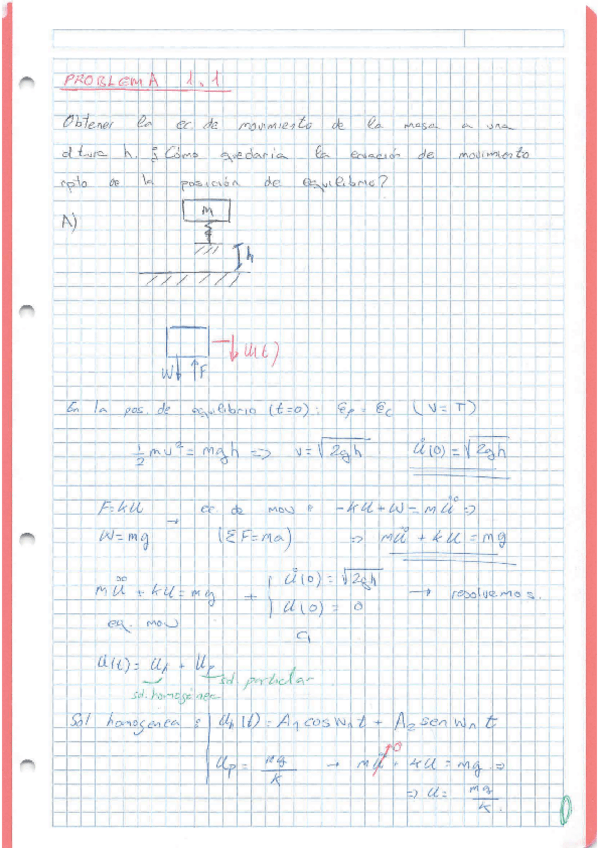 PROBLEMA 1.1
Obtener la ec. de movimiento de la masa a una
altura h. ¿Cómo quedaria la ecuación de movimiento
rpto de la posición de equilibrio?
A)
M
h
u(t)
W F
En la pos. de equilibrio (t=0): Ep = Ec (V=T)
1/2 mv² = mgh => v=√2gh u̇(0)=√2gh
F=ku → ec de mov: -ku+W=mü =>
W=mg (ΣF=ma) => mü+ku=mg
mü+ku=mg + { u̇(0)=√2gh → resolvemos.
eq. mov u(0)=0
CI
u(t)= up + up
sol particular
sol. homogénea
Sol homogenea: uh(t)=A1 cos wn t + A2 sen wn t
up = mg/k → mü + ku = mg => 0
=> u= mg/k.